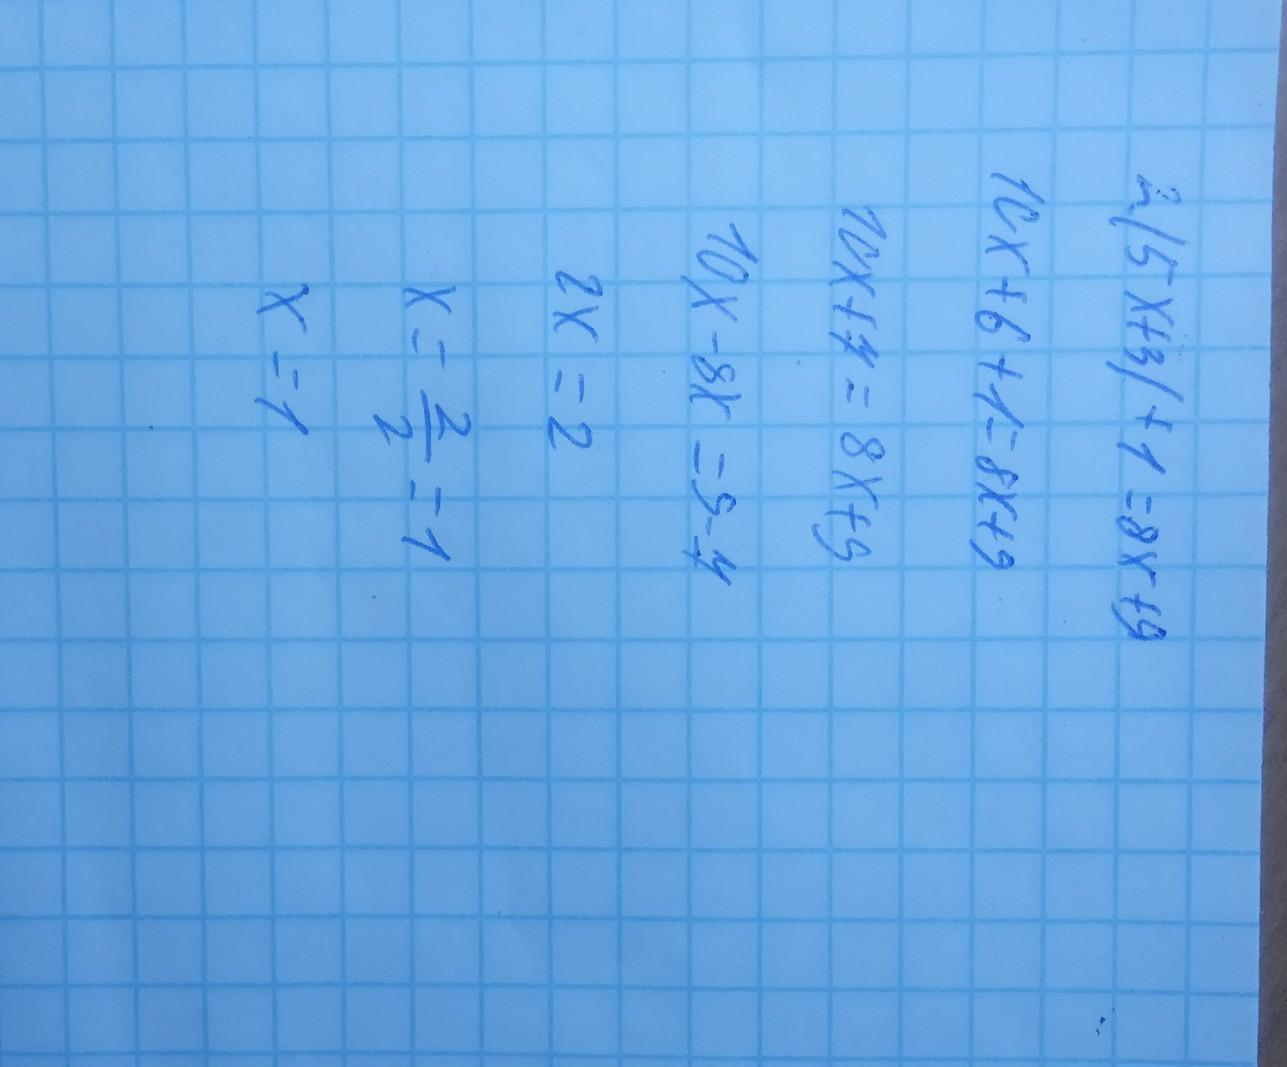 2(5x+3)+1=8x+9
10x+6+1=8x+9
10x+7=8x+9
10x-8x=9-7
2x=2
x=\frac{2}{2}=1
x=1